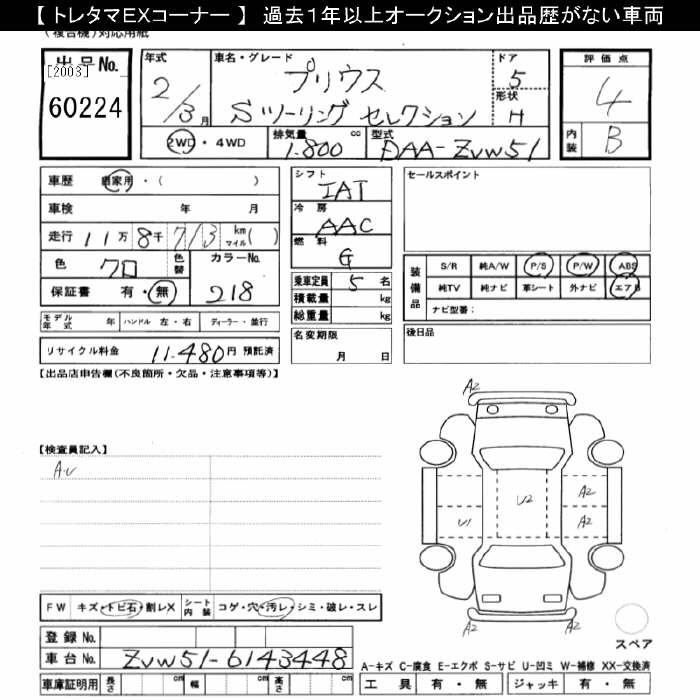 【 トレタマEXコーナー 】 過去１年以上オークション出品歴がない車両
(複合機) 対応用紙
出品No.
[2003]
60224
年式
2/3月
車名・グレード
プリウス
Sツーリング セレクション
ドア
5
形状
H
評価点
4
内装
B
2WD・4WD
排気量
1.800 cc
型式
DAA-ZVW51
車歴 自家用・( )
車検 年 月
走行 11万8千713 km マイル( )
色 クロ 色替 カラーNo. 218
保証書 有・無
シフト
IAT
冷房
AAC
燃料
G
乗車定員 5 名
積載量 kg
総重量 kg
セールスポイント
装備品
S/R 純A/W P/S P/W ABS
純TV 純ナビ 革シート 外ナビ エアB
ナビ型番:
モデル年式 年 ハンドル 左・右 ディーラー・並行
名変期限
月 日
後日品
リサイクル料金 11.480円 預託済
【出品店申告欄(不良箇所・欠品・注意事項等)】
【検査員記入】
A2
U2
A2
U1
A2
A2
スペア
FW キズ・トビ石・割レX シート内装 コゲ・穴・汚レ・シミ・破レ・スレ
登録No.
車台No. ZVW51-6143448
A-キズ C-腐食 E-エクボ S-サビ U-凹ミ W-補修 XX-交換済
車庫証明用 長さ cm 幅 cm 高さ cm
工具 有・無 ジャッキ 有・無